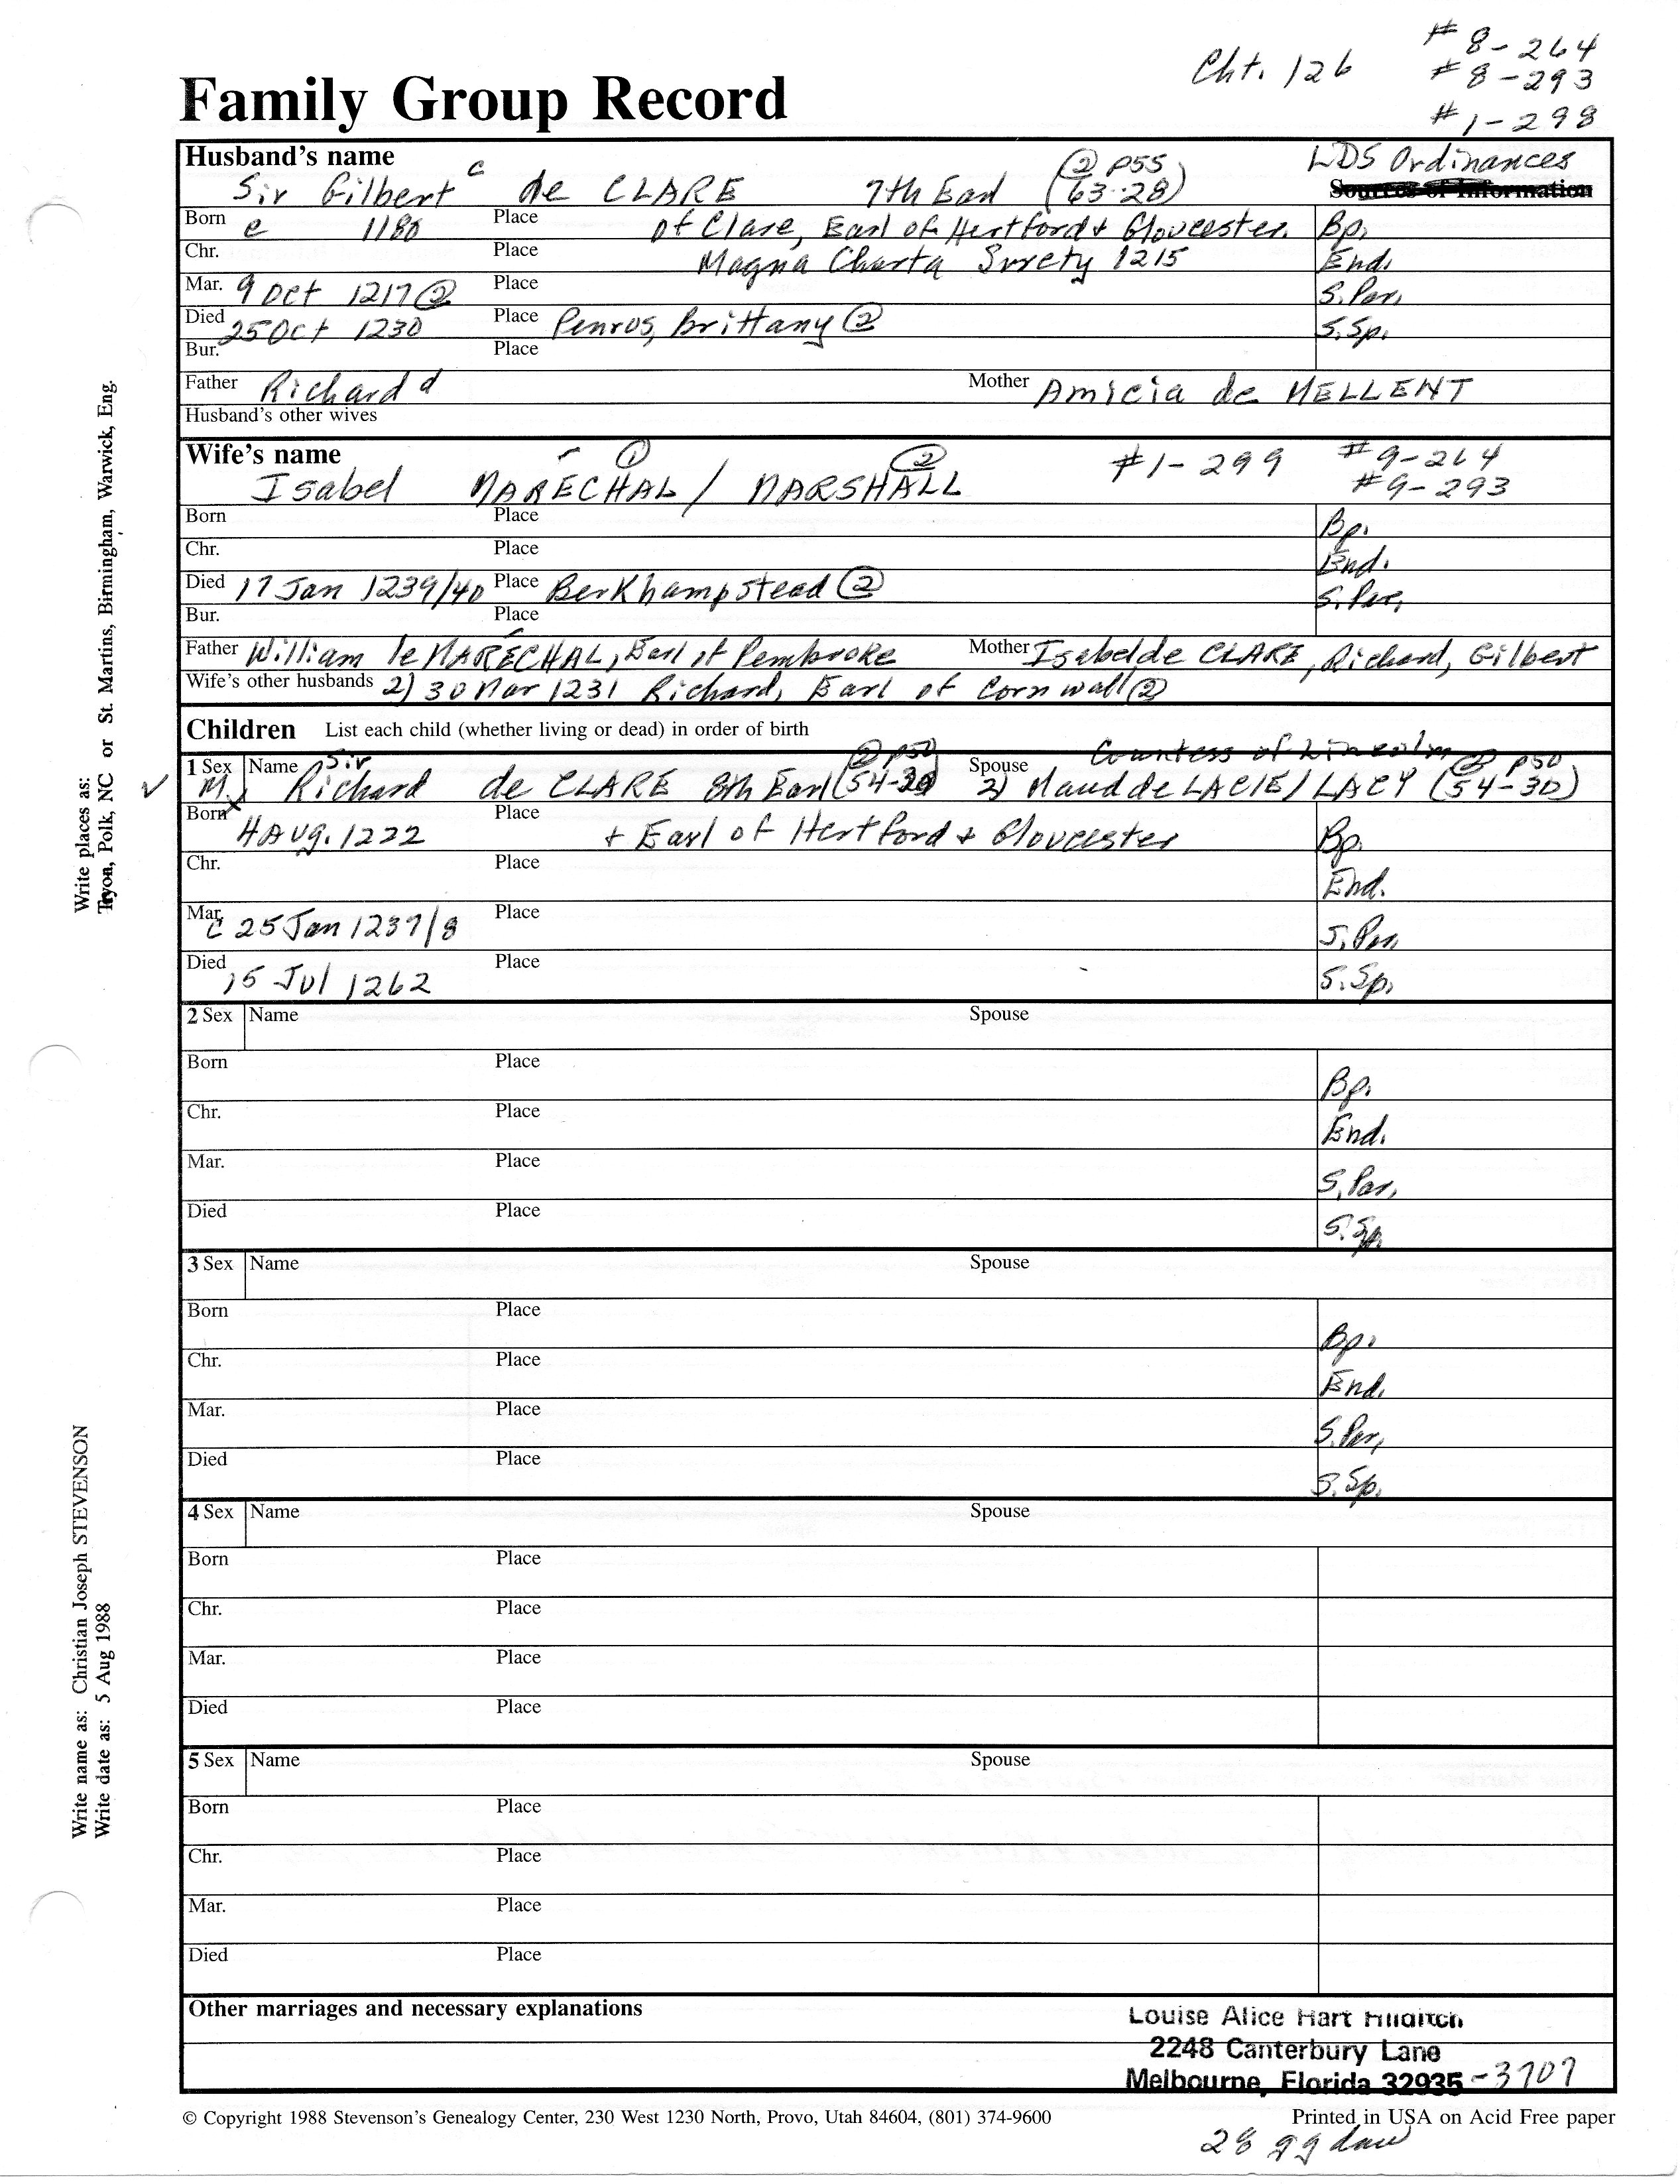 Cht. 126
# 8-264
# 8-293
# 1-298
Family Group Record
Husband's name
Sir Gilbert c de CLARE 7th Earl (② p55 63-28)
LDS Ordinances
Sources of Information
Born c 1180 Place of Clare, Earl of Hertford + Gloucester. Bp.
Chr. Place Magna Charta Surety 1215 End.
Mar. 9 Oct 1217 ② Place S.Par.
Died 25 Oct 1230 Place Penros, Brittany ② S.Sp.
Bur. Place
Father Richard d Mother Amicia de MELLENT
Husband's other wives
Wife's name
Isabel MARÉCHAL ① / MARSHALL ② #1-299 #9-264
#9-293
Born Place Bp.
Chr. Place End.
Died 17 Jan 1239/40 Place BerKhampstead ② S.Par.
Bur. Place
Father William le MARÉCHAL, Earl of Pembroke Mother Isabel de CLARE, Richard, Gilbert
Wife's other husbands 2) 30 Mar 1231 Richard, Earl of Cornwall ②
Children List each child (whether living or dead) in order of birth
Countess of Lincoln
1 Sex M. Name Sir Richard de CLARE 8th Earl (② p50 54-30) Spouse 2) Maud de LACIE/LACY (② p50 54-30)
Born 4 Aug. 1222 Place + Earl of Hertford + Gloucester Bp.
Chr. Place End.
Mar. c 25 Jan 1237/8 Place S.Par.
Died 15 Jul 1262 Place S.Sp.
2 Sex Name Spouse
Born Place Bp.
Chr. Place End.
Mar. Place S.Par.
Died Place S.Sp.
3 Sex Name Spouse
Born Place Bp.
Chr. Place End.
Mar. Place S.Par.
Died Place S.Sp.
4 Sex Name Spouse
Born Place
Chr. Place
Mar. Place
Died Place
5 Sex Name Spouse
Born Place
Chr. Place
Mar. Place
Died Place
Other marriages and necessary explanations
Louise Alice Hart Hilditch
2248 Canterbury Lane
Melbourne, Florida 32935-3707
© Copyright 1988 Stevenson's Genealogy Center, 230 West 1230 North, Provo, Utah 84604, (801) 374-9600 Printed in USA on Acid Free paper
28 gg dau
Write places as:
Tryon, Polk, NC or St. Martins, Birmingham, Warwick, Eng.
Write name as: Christian Joseph STEVENSON
Write date as: 5 Aug 1988